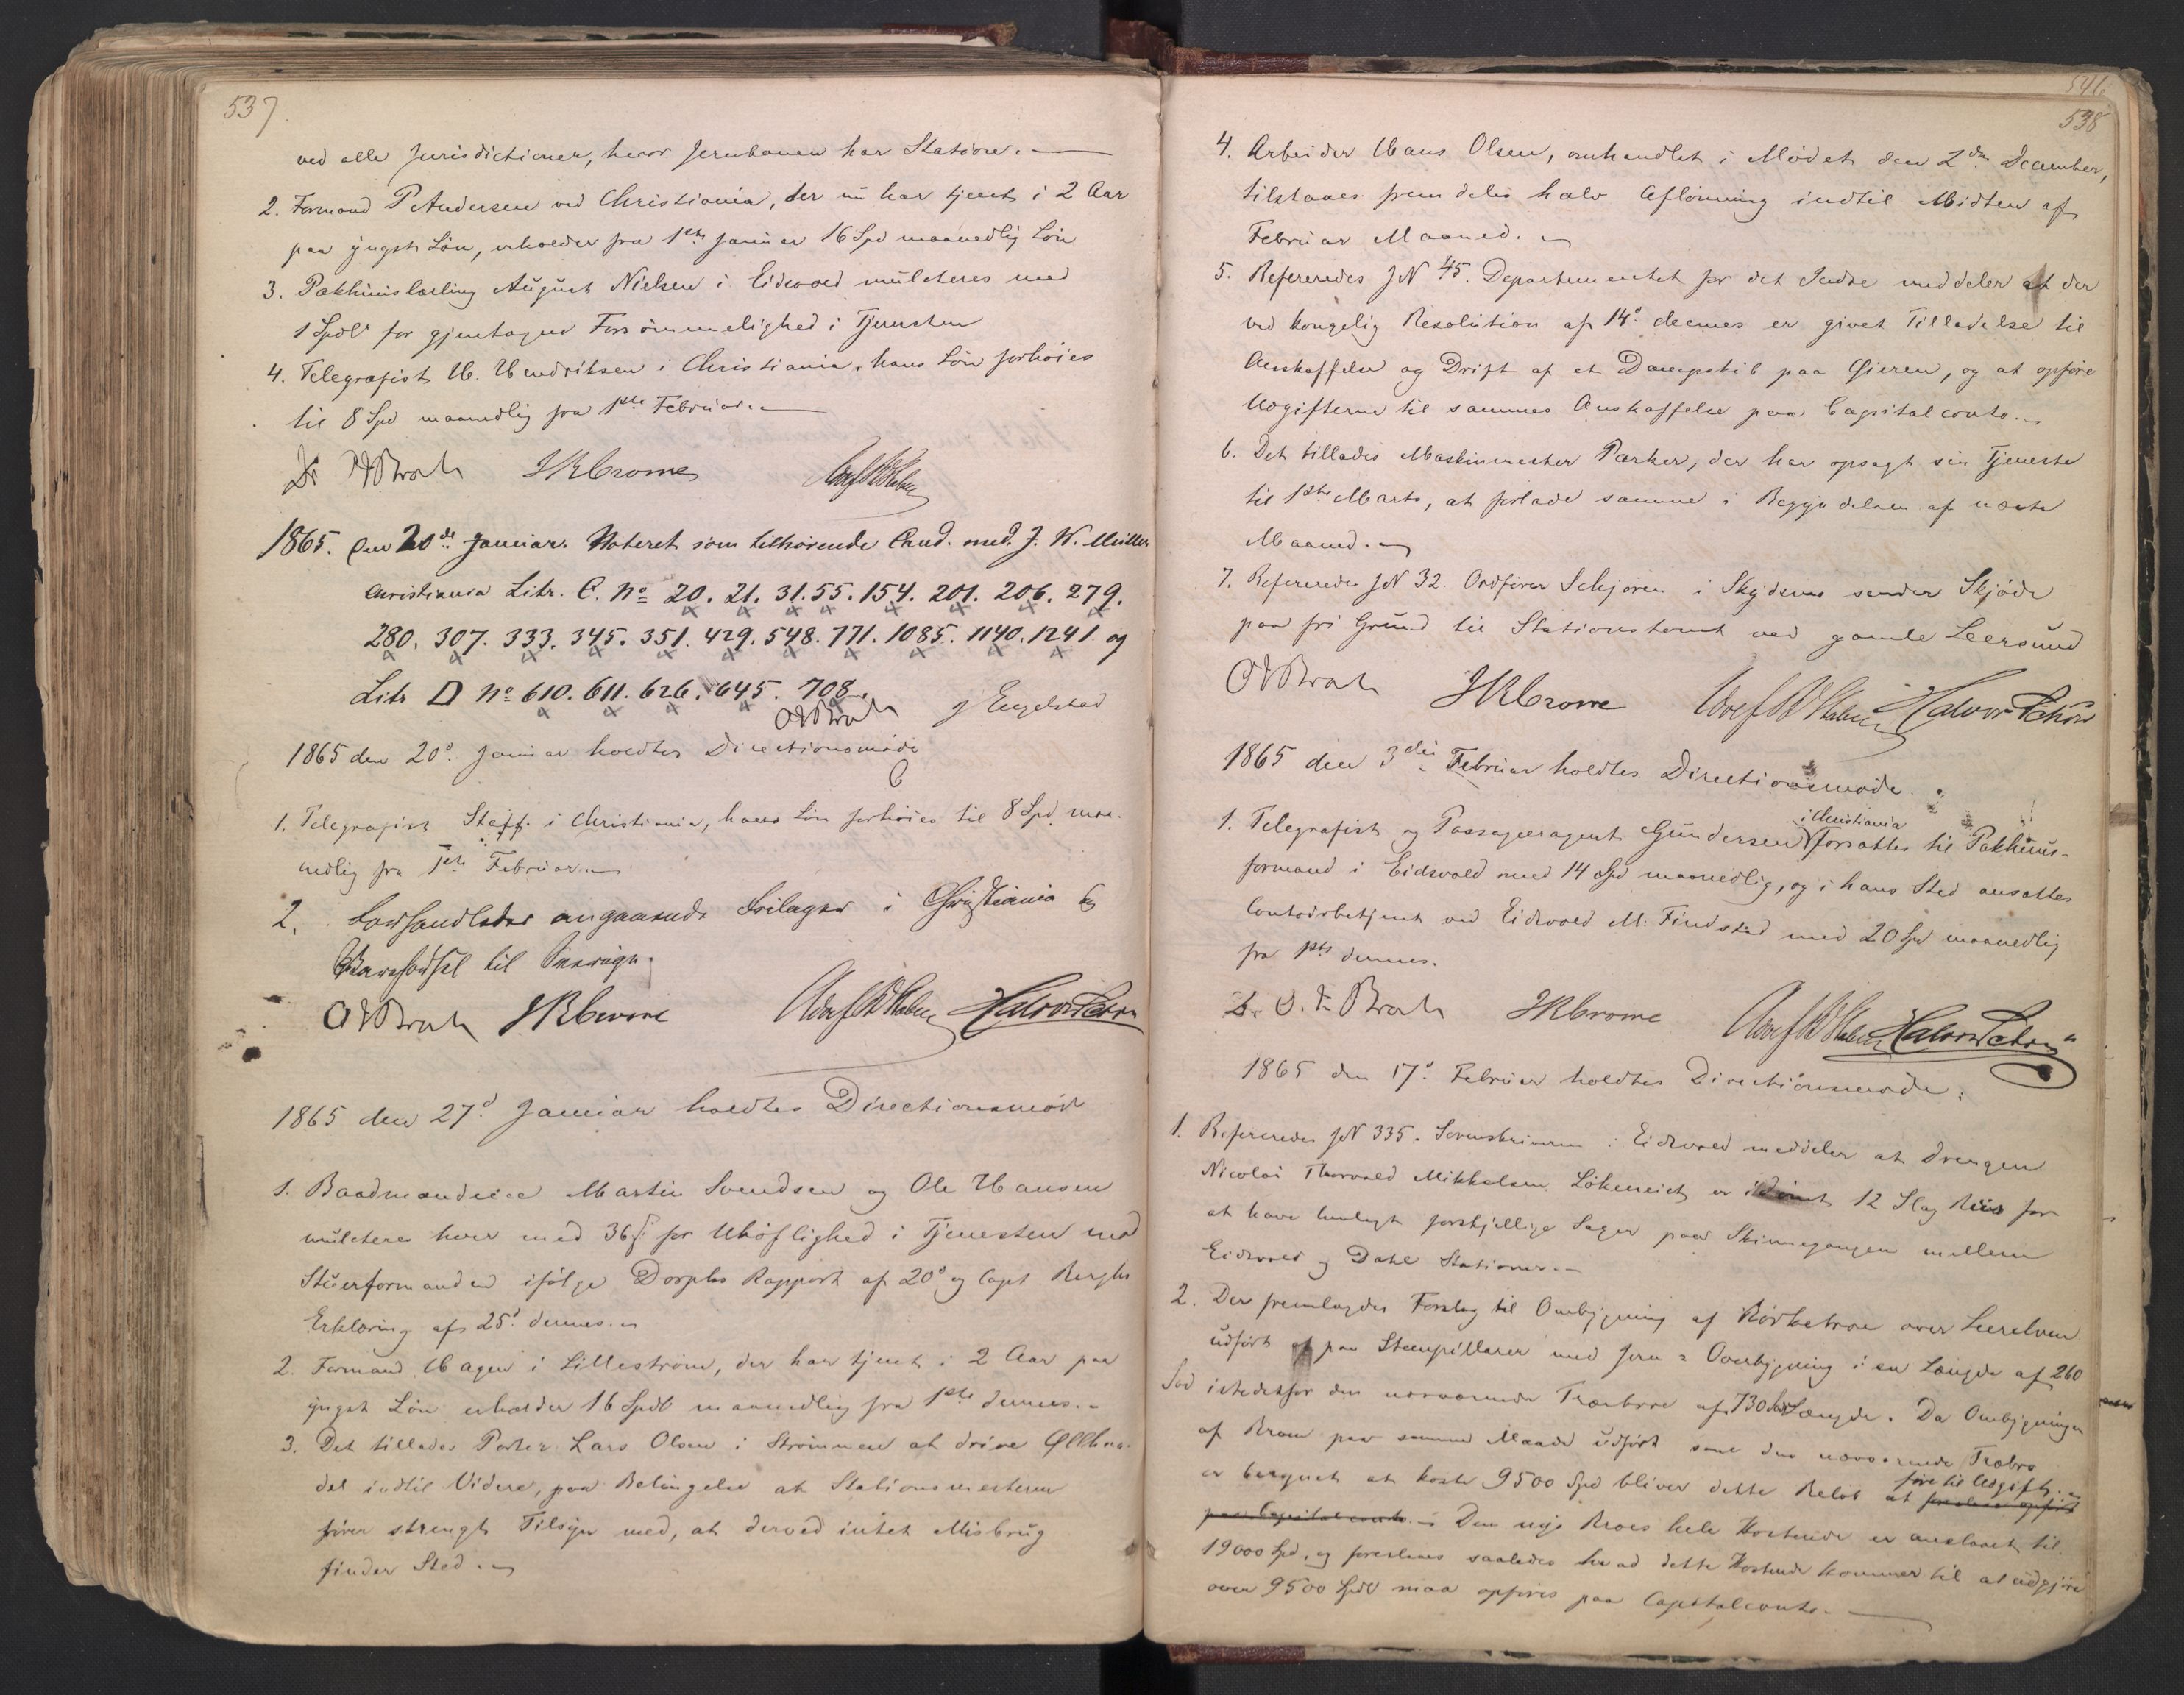 537.
ved alle Jurisdictioner, hvor Jernbanen har Statione.
2. Formand P Andersen ved Christiania, der nu har tjent i 2 Aar
paa yngste Lön, erholder fra 1ste Januar 16 Spd maanedlig Lön
3. Pakhuuslærling August Nielsen i Eidsvold mulcteres med
1 Spdl for gjentagen Forsömmelighed i Tjenesten
4. Telegrafist H. Hendriksen i Christiania, hans Lön forhöies
til 8 Spd maanedlig fra 1ste Februar.
Dr OJBroch JRCrowe
1865. Den 20de Januar. Noteret som tilhörende Cand. med. J. W. Müller
Christiania Litr. C. No 20. 21. 31. 55. 154. 201. 206. 279.
280. 307. 333. 345. 351. 429. 548. 771. 1085. 1140. 1241. og
Litr D No 610. 611. 626. 645. 708.
OJBroch J Engelstad
1865 den 20d Januar holdtes Directionsmöde
1. Telegrafist Staff i Christiania, hans Lön forhöies til 8 Spd maa-
nedlig fra 1ste Februar.
2. Forhandledes angaaende Oplaget i Christiania og
til
OJBroch JRCrowe Halvor Schou
1865 den 27d Januar holdtes Directionsmöde
1. Baadmændene Martin Svendsen og Ole Hansen
mulcteres hver med 36 ß for Uhöflighed i Tjenesten mod
Stuerformanden ifölge Dorphs Rapport af 20d og Capt Berghs
Erklæring af 25d dennes.
2. Formand Hagen i Lilleström, der har tjent i 2 Aar paa
yngst Lön erholder 16 Spdl maanedlig fra 1ste dennes.
3. Det tillades Porter Lars Olsen i Strömmen at drive Öllhan-
del indtil Videre, paa Betingelse at Stationsmesteren
förer strengt Tilsyn med, at derved intet Misbrug
finder Sted.
546
538
4. Arbeider Hans Olsen, omhandlet i Mödet den 2den December,
tilstaaes fremdeles halv Aflönning indtil Midten af
Februar Maaned.
5. Refereredes JN 45. Departementet for det Indre meddeler at der
ved kongelig Resolution af 14d dennes er givet Tilladelse til
Anskaffelse og Drift af et Dampskib paa Öieren, og at opföre
Udgifterne til sammes Anskaffelse paa Capitalconto.
6. Det tillades Maskinmester Parker, der har opsagt sin Tjeneste
til 1ste Marts, at forlade samme i Begyndelsen af næste
Maaned.
7. Refereredes JN 32. Ordförer Schjören i Skydsmo sender Skjöde
paa fri Grund til Stationstomt ved gamle Leersund
OJBroch JRCrowe Halvor Schou
1865 den 3die Februar holdtes Directionsmöde.
i Christiania
1. Telegrafist og Passageeragent Gundersen forsættes til Pakhuus-
formand i Eidsvold med 14 Spd maanedlig, og i hans Sted ansættes
Contorbetjent ved Eidsvold M. Findstad med 20 Spd maanedlig
fra 1ste dennes.
Dr. O. J. Broch JRCrowe Halvor Schou
1865 den 17d Februar holdtes Directionsmöde:
1. Refereredes JN 335. Sorenskriveren i Eidsvold meddeler at Drengen
Nicolai Thorvald Mikkelsen Lökeneiet er idömt 12 Slag Riis for
at have henlagt forskjellige Sager paa Skinnegangen mellem
Eidsvold og Dahl Stationer.
2. Der fremlagdes Forslag til Ombygning af broen over Leerelven
udfört paa Steenpillarer med Jern = Overbygning i en Længde af 260
Fod istedetfor den nærværende Træbroe af 730 Længde. Da Ombygningen
af Broen paa samme Maade udfört som den nærværende Træbro
er beregnet at koste 9500 Spd bliver dette Belöb at före til Udgift.
paa Capitalconto. Den nye Broes hele Kostende er anslaaet til
19000 Spd, og foreslaaes saaledes hvad dette Kostende kommer til at udgjöre
over 9500 Spdl maa opföres paa Capitalconto.